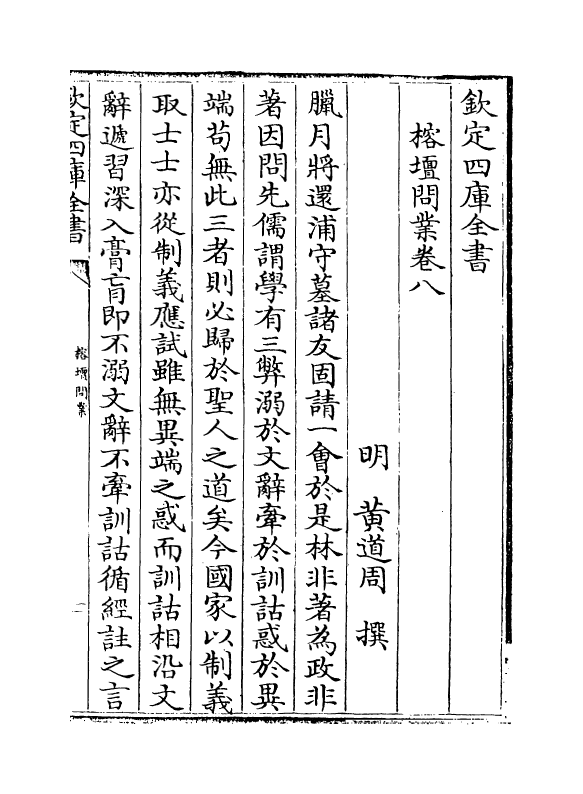 欽定四庫全書
榕壇問業卷八
明　黄道周　撰
臘月將還浦守墓諸友固請一會於是林非著為政非
著因問先儒謂學有三弊溺於文辭牽於訓詁惑於異
端苟無此三者則必歸於聖人之道矣今國家以制義
取士士亦從制義應試雖無異端之惑而訓詁相沿文
辭遞習深入膏肓即不溺文辭不牽訓詁循經註之言
欽定四庫全書
榕壇問業
一